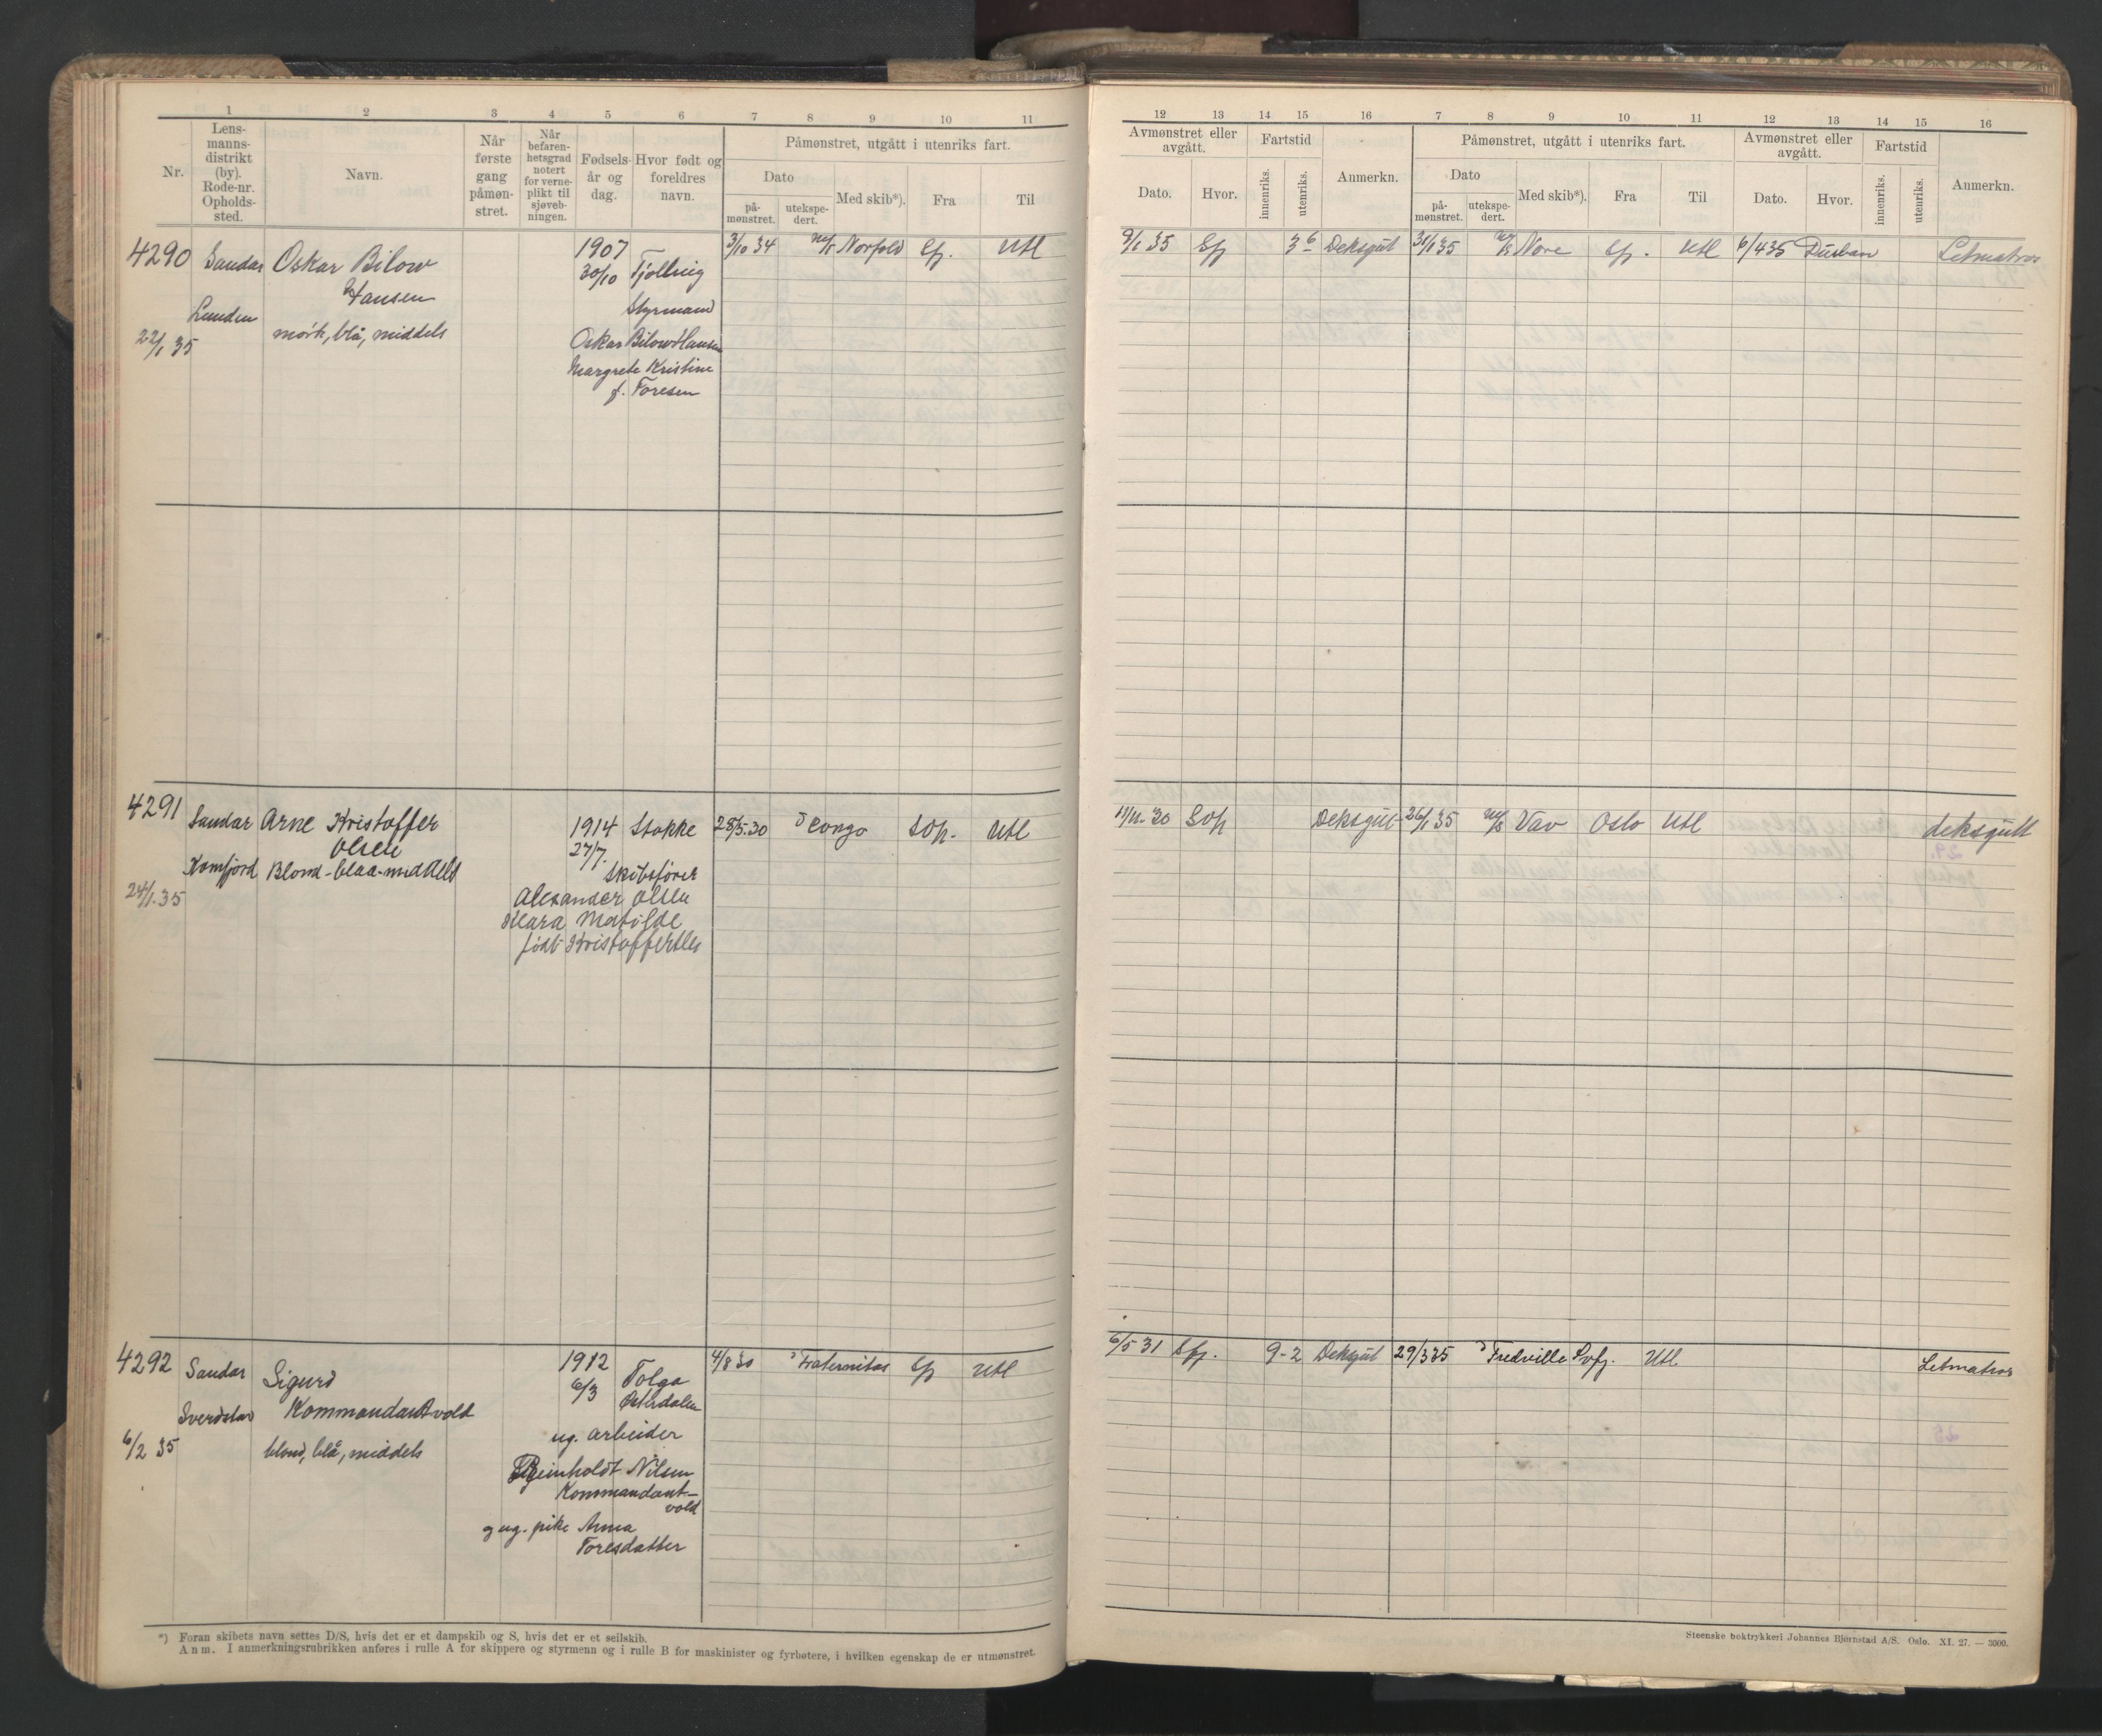 1 2 3 4 5 6 7 8 9 10 11
Nr.
Lens-
manns-
distrikt
(by).
Rode-nr.
Opholds-
sted.
Navn.
Når
første
gang
påmøn-
stret.
Når
befaren-
hetsgrad
notert
for verne-
plikt til
sjøveb-
ningen.
Fødsels-
år og
dag.
Hvor født og
foreldres
navn.
Påmønstret, utgått i utenriks fart.
Dato
på-
mønstret.
utekspe-
dert.
Med skib*).
Fra
Til
4290 Sandar Oskar Bilow 1907 3/10 34 m/s Norfold Sfj. Utl
30/10 Tjølling
Hansen
Styrmand
Lunden
mørk, blå, middels
22/1 35
Oskar Bilow Hansen
Margrete Kristine
f. Foresen
4291 Sandar Arne Kristoffer 1914 Stokke 28/5.30 Congo Utl
Olsen 27/7.
Kamfjord Blond-blaa-middels
Skibsfører
24/1.35
Alexander Olsen
Klara Matilde
født Kristoffersen
4292 Sandar Sigurd 1912 Tolga 4/8 30 Fraternitas Sfj Utl
6/3 Østerdalen
Kommandantvold
ug. arbeider
6/2 35 blond, blå, middels
Reinholdt Nilsen
Kommandant-
vold
og ug. pike Anna
Toresdatter
*) Foran skibets navn settes D/S, hvis det er et dampskib og S, hvis det er et seilskib.
Anm. I anmerkningsrubrikken anføres i rulle A for skippere og styrmenn og i rulle B for maskinister og fyrbøtere, i hvilken egenskap de er utmønstret.
12 13 14 15 16 7 8 9 10 11 12 13 14 15 16
Avmønstret eller
avgått.
Dato.
Hvor.
Fartstid
innenriks.
utenriks.
Anmerkn.
Påmønstret, utgått i utenriks fart.
Dato
på-
mønstret.
utekspe-
dert.
Med skib*).
Fra
Til
Avmønstret eller
avgått.
Dato.
Hvor.
Fartstid
innenriks.
utenriks.
Anmerkn.
9/1 35 Sfj 3 6 Deksgut 31/1 35 m/s Nore Sfj. Utl 6/4 35 Durban Letmatros
Deksgut 26/1 35 m/s Vav Oslo Utl deksgutt
6/5 31 Sfj. 9-2 Deksgut 29/3 35 Fredville Utl Letmatros
Steenske boktrykkeri Johannes Bjørnstad A/S. Oslo. XI. 27. — 3000.